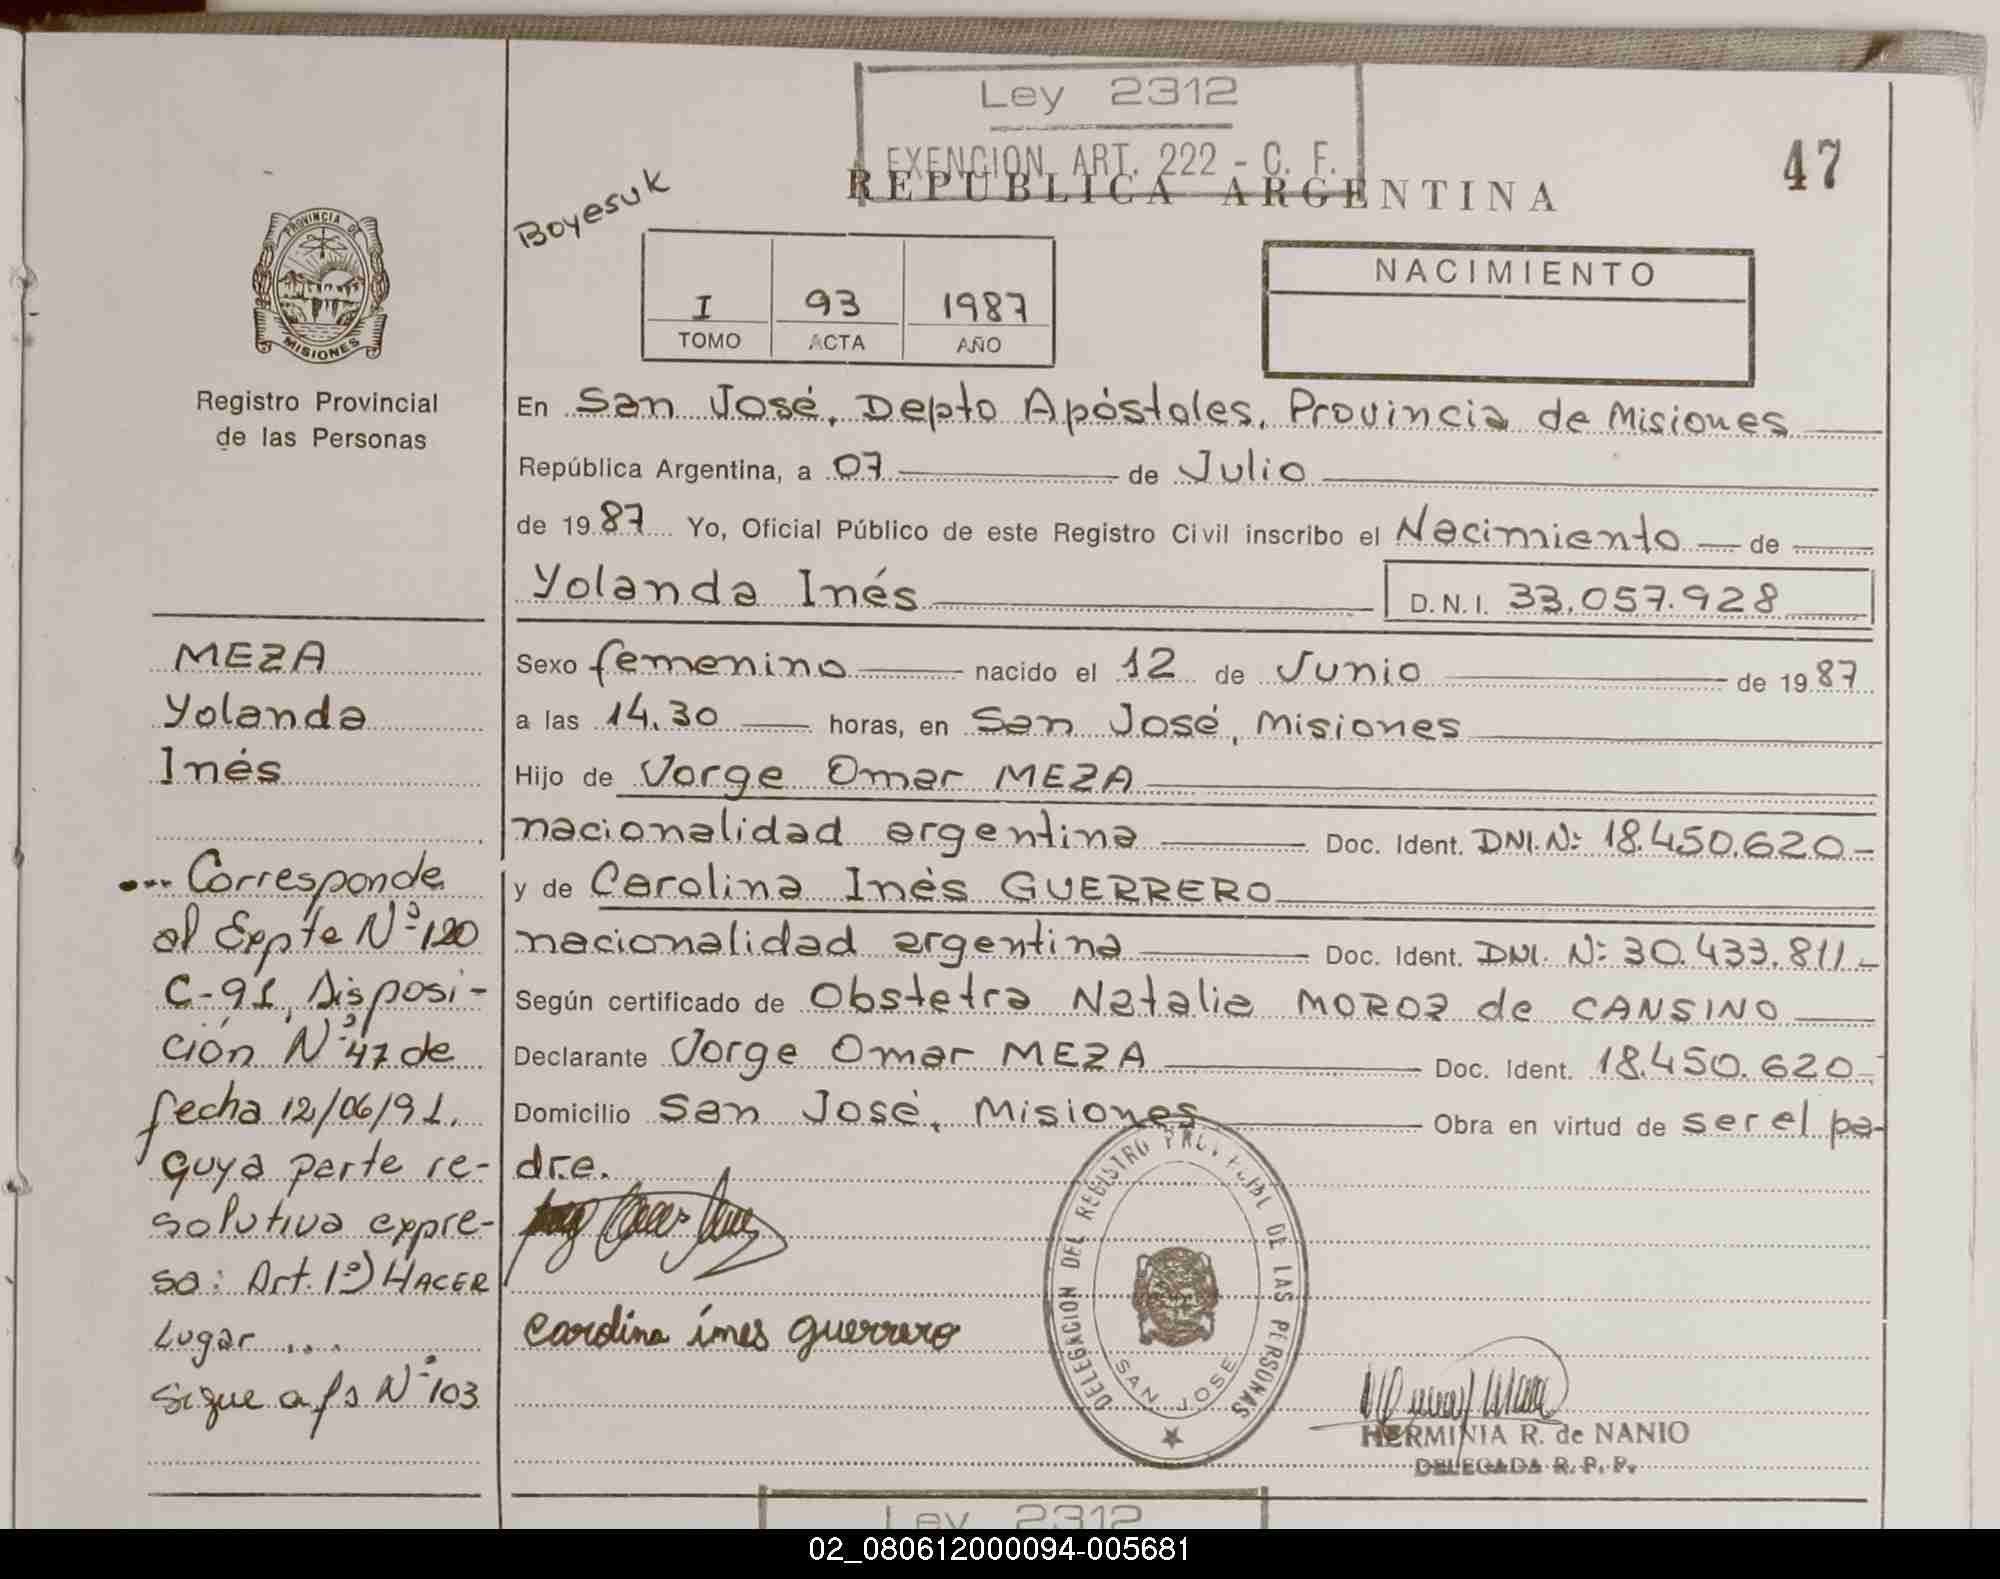 Ley 2312
EXENCION ART. 222 - C. F.
REPUBLICA ARGENTINA
47
Boyesuk
I 93 1987
TOMO ACTA AÑO
NACIMIENTO
PROVINCIA DE
MISIONES
Registro Provincial
de las Personas
En San José, Depto Apóstoles, Provincia de Misiones
República Argentina, a 07 de Julio
de 1987 Yo, Oficial Público de este Registro Civil inscribo el Nacimiento de
Yolanda Inés D.N.I. 33.057.928
Sexo femenino nacido el 12 de Junio de 1987
a las 14.30 horas, en San José, Misiones
Hijo de Jorge Omar MEZA
nacionalidad argentina Doc. Ident. DNI.Nº 18.450.620-
y de Carolina Inés GUERRERO
nacionalidad argentina Doc. Ident. DNI. Nº 30.433.811.-
Según certificado de Obstetra Natalia MOROZ de CANSINO
Declarante Jorge Omar MEZA Doc. Ident. 18.450.620-
Domicilio San José, Misiones Obra en virtud de ser el pa-
dre.
MEZA
Yolanda
Inés
... Corresponde
al Expte Nº 120
C-91, Disposi-
ción Nº 47 de
fecha 12/06/91.
cuya parte re-
solutiva expre-
sa: Art. 1º) HACER
Lugar ....
Sigue a fs Nº 103
carolina ines guerrero
DELEGACION DEL REGISTRO PROVINCIAL DE LAS PERSONAS
SAN JOSE
HERMINIA R. de NANIO
DELEGADA R. P. P.
Ley 2312
02_080612000094-005681